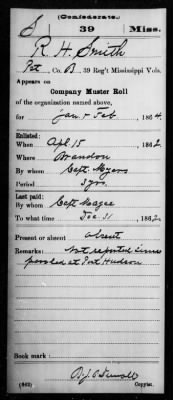 (Confederate.)
S 39 Miss.
R. H. Smith
Pvt, Co. B, 39 Reg't Mississippi Vols.
Appears on
Company Muster Roll
of the organization named above,
for Jan & Feb, 1864.
Enlisted:
When Apl 15, 1862.
Where Brandon
By whom Capt. Myers
Period 3 yrs.
Last paid:
By whom Capt Magee
To what time Dec 31, 1862.
Present or absent absent
Remarks: Not reported since
paroled at Port Hudson
Book mark:
Copyist.